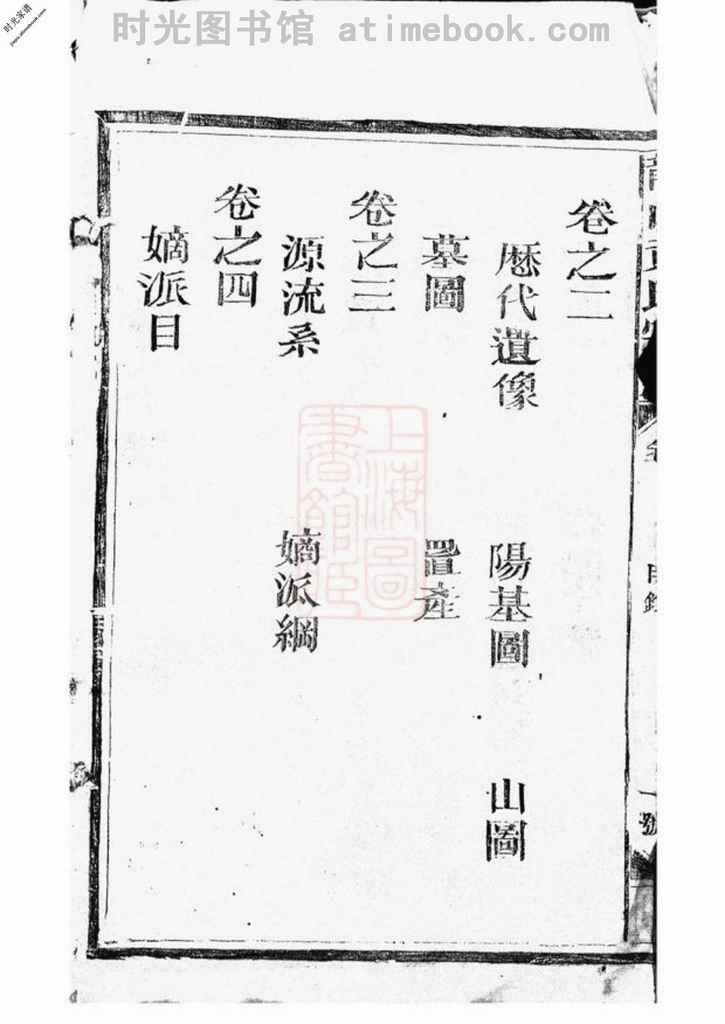 时光图书馆 atimebook.com
时光家谱
卷之二
歷代遺像 陽基圖 山圖
墓圖 置產
卷之三
源流系 嫡派綱
卷之四
嫡派目
上海圖書館藏
目錄
號